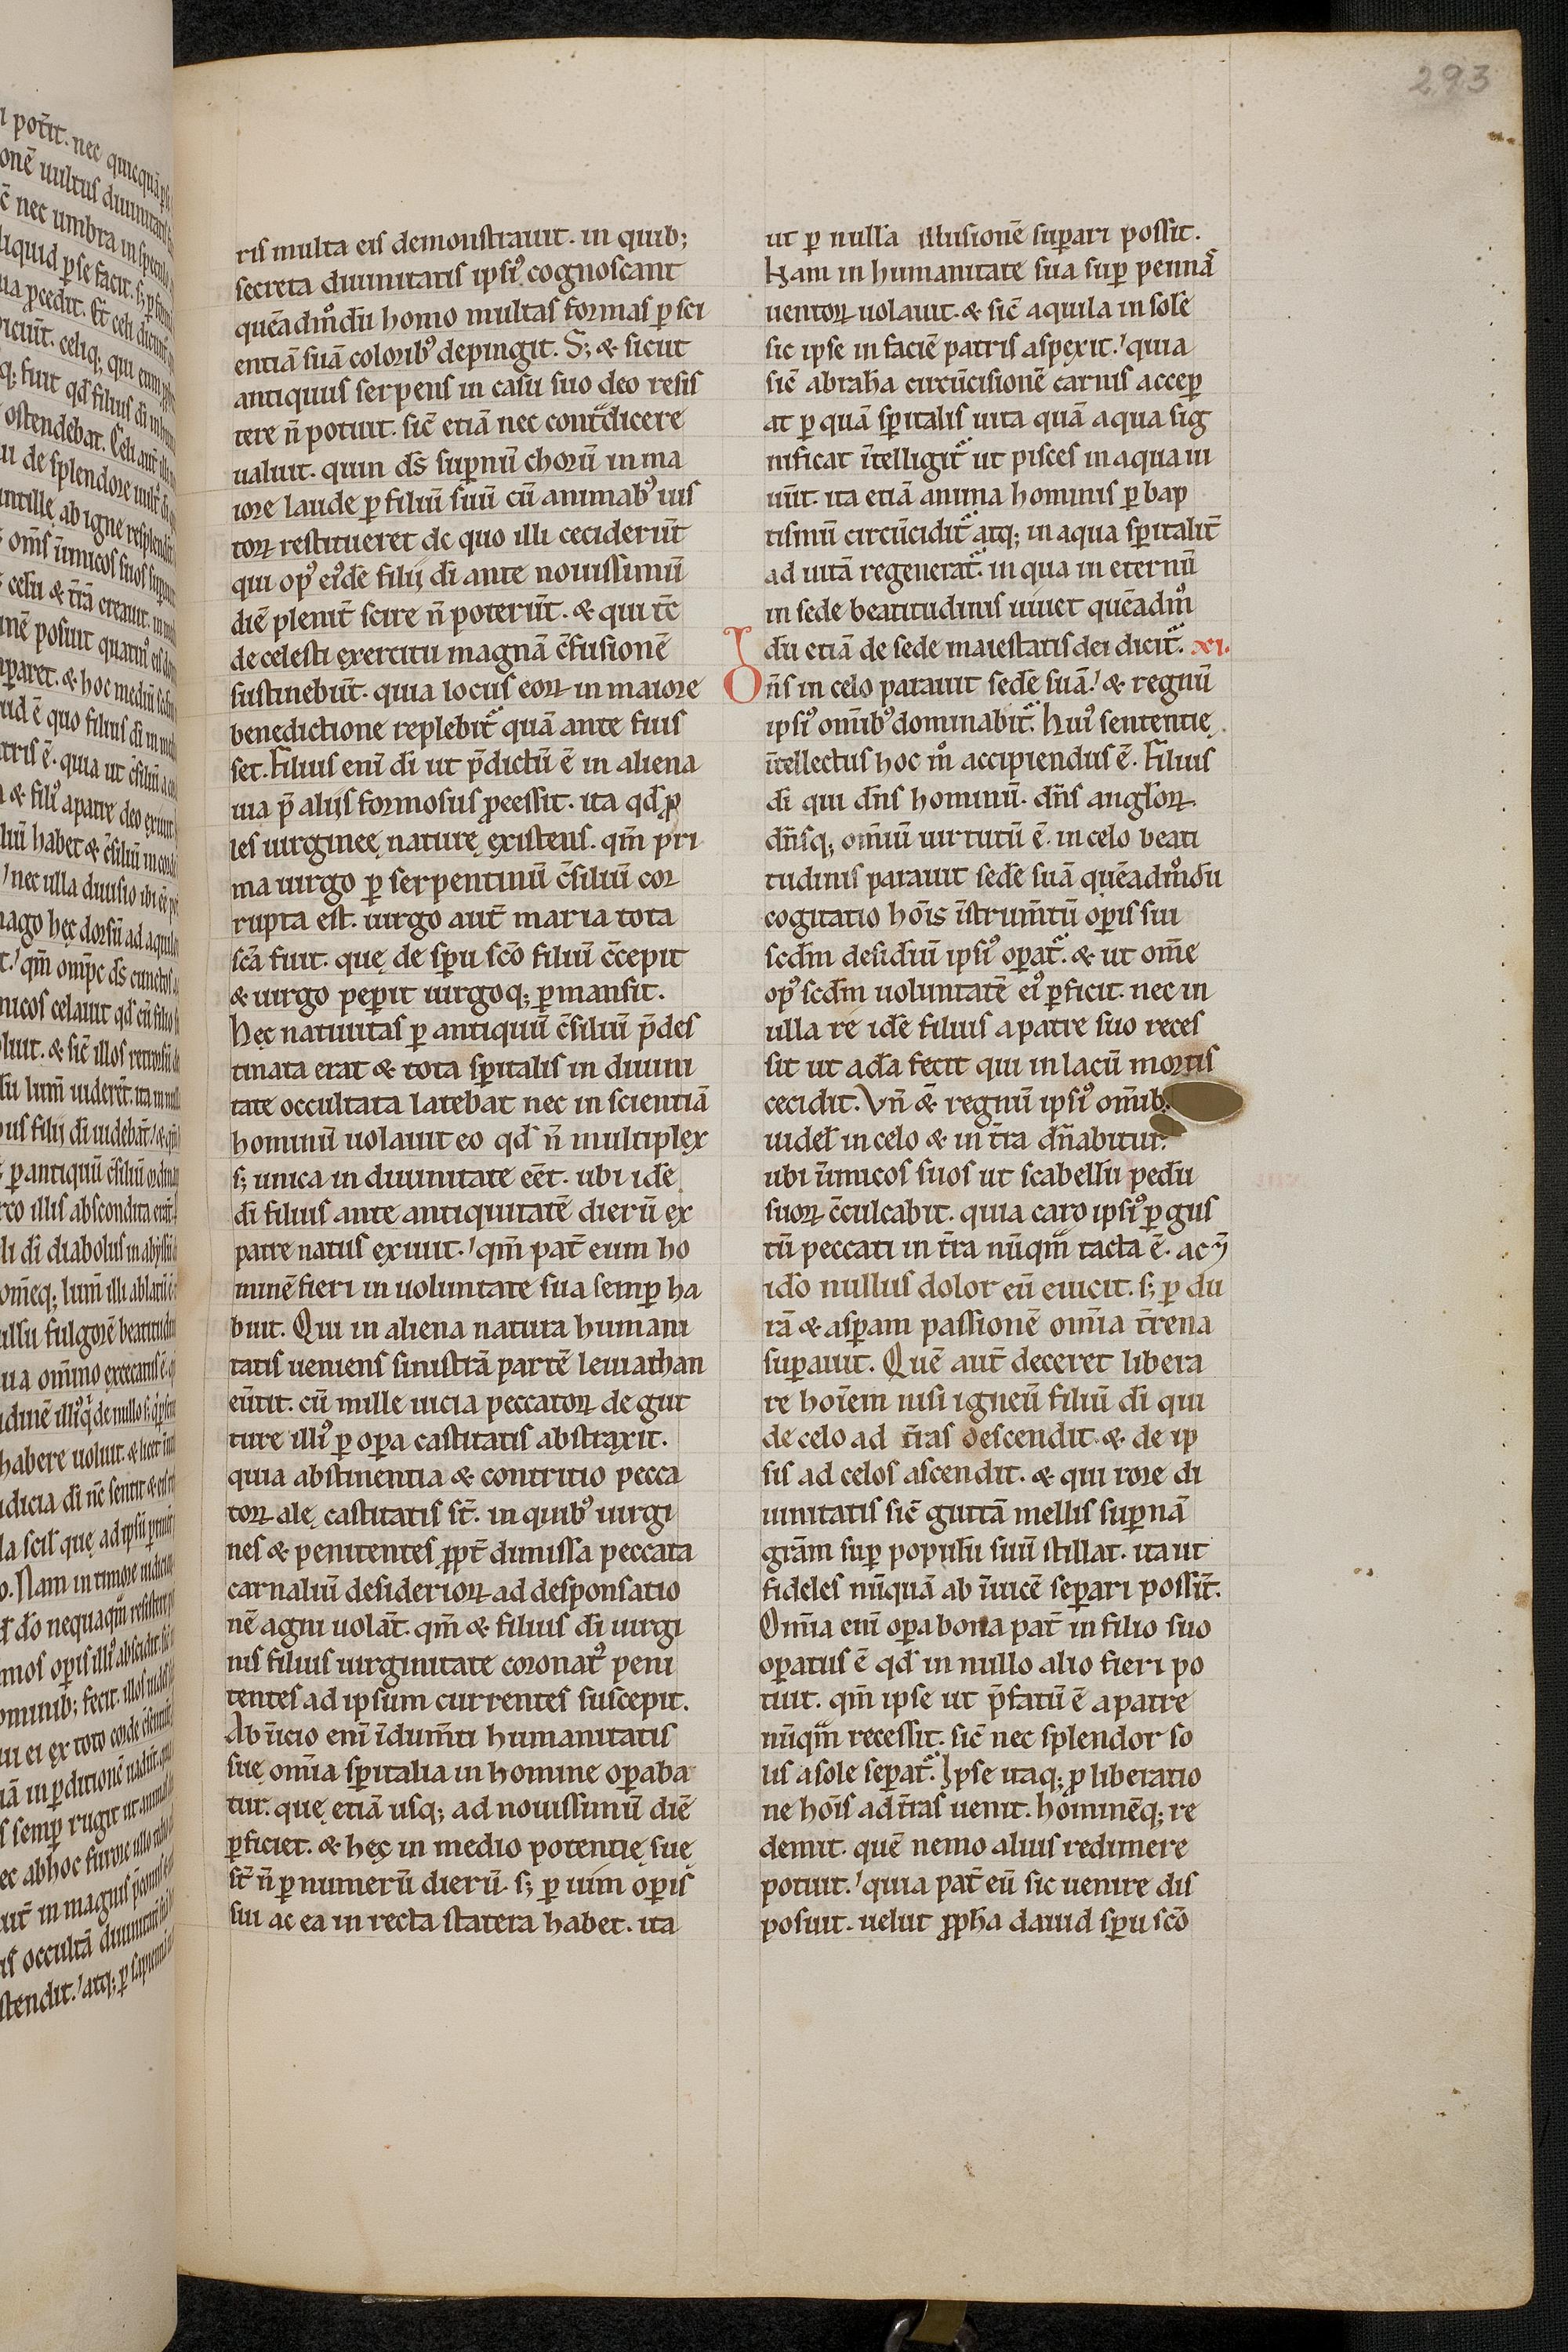 293
ris multa eis demonstrauit. in quib;
secreta diuinitatis ipsiꝰ cognoscant
quēadmͦdū homo multas formas ꝑ sci
entiā suā coloribꝰ depingit. S; & sicut
antiquus serpens in casu suo deo resis
tere n̄ potuit. sic̄ etiā nec cont̃dicere
ualuit. quin ds̄ suꝑnū chorū in ma
iore laude ꝑ filiū suū cū animabꝰ ius
toꝝ restitueret de quo illi ceciderūt
qui opꝰ eiꝰdē filij dī ante nouissimū
diē plenit̄ scire n̄ poterūt. & qui tc̄
de celesti exercitu magnā c̄fusionē
sustinebūt. quia locus eoꝝ in maiore
benedictione replebit̃ quā ante fuis
set. Filius enī dī ut p̄dictū ē in aliena
uia p̄ alijs formosus ꝓcessit. ita qd̄ ꝓ
les uirgineę naturę existens. qm̄ pri
ma uirgo ꝑ serpentinū c̄siliū cor
rupta est. uirgo aut̄ maria tota
sc̄a fuit. quę de spū sc̄o filiū c̄cepit
& uirgo peꝑit uirgoq; ꝑmansit.
Hęc natiuitas ꝑ antiquū c̄siliū p̄des
tinata erat & tota sp̄italis in diuini
tate occultata latebat nec in scientiā
hominū uolauit eo qd̄ n̄ multiplex
s; unica in diuinitate eēt. ubi idē
dī filius ante antiquitatē dierū ex
patre natus exiuit. qm̄ pat̄ eum ho
minē fieri in uoluntate sua semꝑ ha
buit. Qui in aliena natura humani
tatis ueniens sinistrā partē leuiathan
eūtit. cū mille uicia peccatoꝝ de gut
ture illiꝰ ꝑ oꝑa castitatis abstraxit.
quia abstinentia & contritio pecca
toꝝ alę castitatis st̄. in quibꝰ uirgi
nes & penitentes ꝓpt̄ dimissa peccata
carnaliū desiderioꝝ ad desponsatio
nē agni uolāt. qm̄ & filius dī uirgi
nis filius uirginitate coronatꝰ peni
tentes ad ipsum currentes suscepit.
Ab īicio enī īdum̄ti humanitatis
suę om̄ia sp̄italia in homine oꝑaba
tur. quę etiā usq; ad nouissimū diē
ꝑficiet. & hęc in medio potentię suę
st̄ n̄ ꝑ numerū dierū. s; ꝑ uim oꝑis
sui ac ea in recta statera habet. ita
ut ꝑ nulla illusionē suꝑari possit.
Nam in humanitate sua suꝑ pennā
uentoꝝ uolauit. & sic̄ aquila in solē
sic ipse in faciē patris aspexit. quia
sic̄ abrahā circūcisionē carnis acceꝑ
at ꝑ quā sp̄italis uita quā aqua sig
nificat īteligit̃ ut pisces in aqua ui
uūt. ita etiā anima hominis ꝑ bap
tismū circūcidit̃ atq; in aqua sp̄italit̄
ad uitā regenerat̃. in qua in eternū
in sede beatitudinis uiuet quēadmͦ
dū etiā de sede maiestatis dei dicit̃. XI.
Dn̄s in celo parauit sedē suā. & regnū
ipsiꝰ om̄ibꝰ dominabit̃. Huiꝰ sententię
ītellectus hoc mͦ accipiendus ē. Filius
dī qui dn̄s hominū. dn̄s angl̄oꝝ
dn̄sq; om̄iū uirtutū ē. in celo beati
tudinis parauit sedē suā quēadmͦdū
cogitatio hoīs īstrum̄tū oꝑis sui
scdm̄ desid̄iū ipsiꝰ oꝑat̃. & ut om̄e
opꝰ scdm̄ uoluntatē eiꝰ ꝑficit. nec in
ulla rē idē filius a patre suo reces
sit ut adā fecit qui in lacū mortis
cecidit. Vn̄ & regnū ipsiꝰ om̄ib;
uidel̄ in celo & in t̄ra dn̄abitur.
ubi īimicos suos ut scabellū pedū
suoꝝ c̄culcabit. quia caro ipsiꝰ ꝑ gus
tū peccati in t̄ra nūqm̄ tacta ē. ac
idō nullus dolor eū eiecit. s; ꝑ du
rā & asꝑam passionē om̄ia t̄rena
suꝑauit. Quē aut̄ deceret libera
re hoīem nisi igneū filiū dī qui
de celo ad t̄ras descendit. & de ip
sis ad celos ascendit. & qui rore di
uinitatis sic̄ guttā mellis suꝑnā
grām suꝑ popul̄ū suū stillat. ita ut
fideles nūquā ab īuicē seꝑari possīt.
Om̄ia enī oꝑa bona pat̄ in filio suo
oꝑatus ē qd̄ in nullo alio fieri po
tuit. qm̄ ipse ut p̄fatū ē a patre
nūqm̄ recessit. sic̄ nec splendor so
lis a sole seꝑat̃. Ipse itaq; ꝑ liberatio
ne hoīs ad t̄ras uenit. hominēq; re
demit. quē nemo alius redimere
potuit. quia pat̄ eū sic uenire dis
posuit. uelut ꝓph̄a dauid spū sc̄o